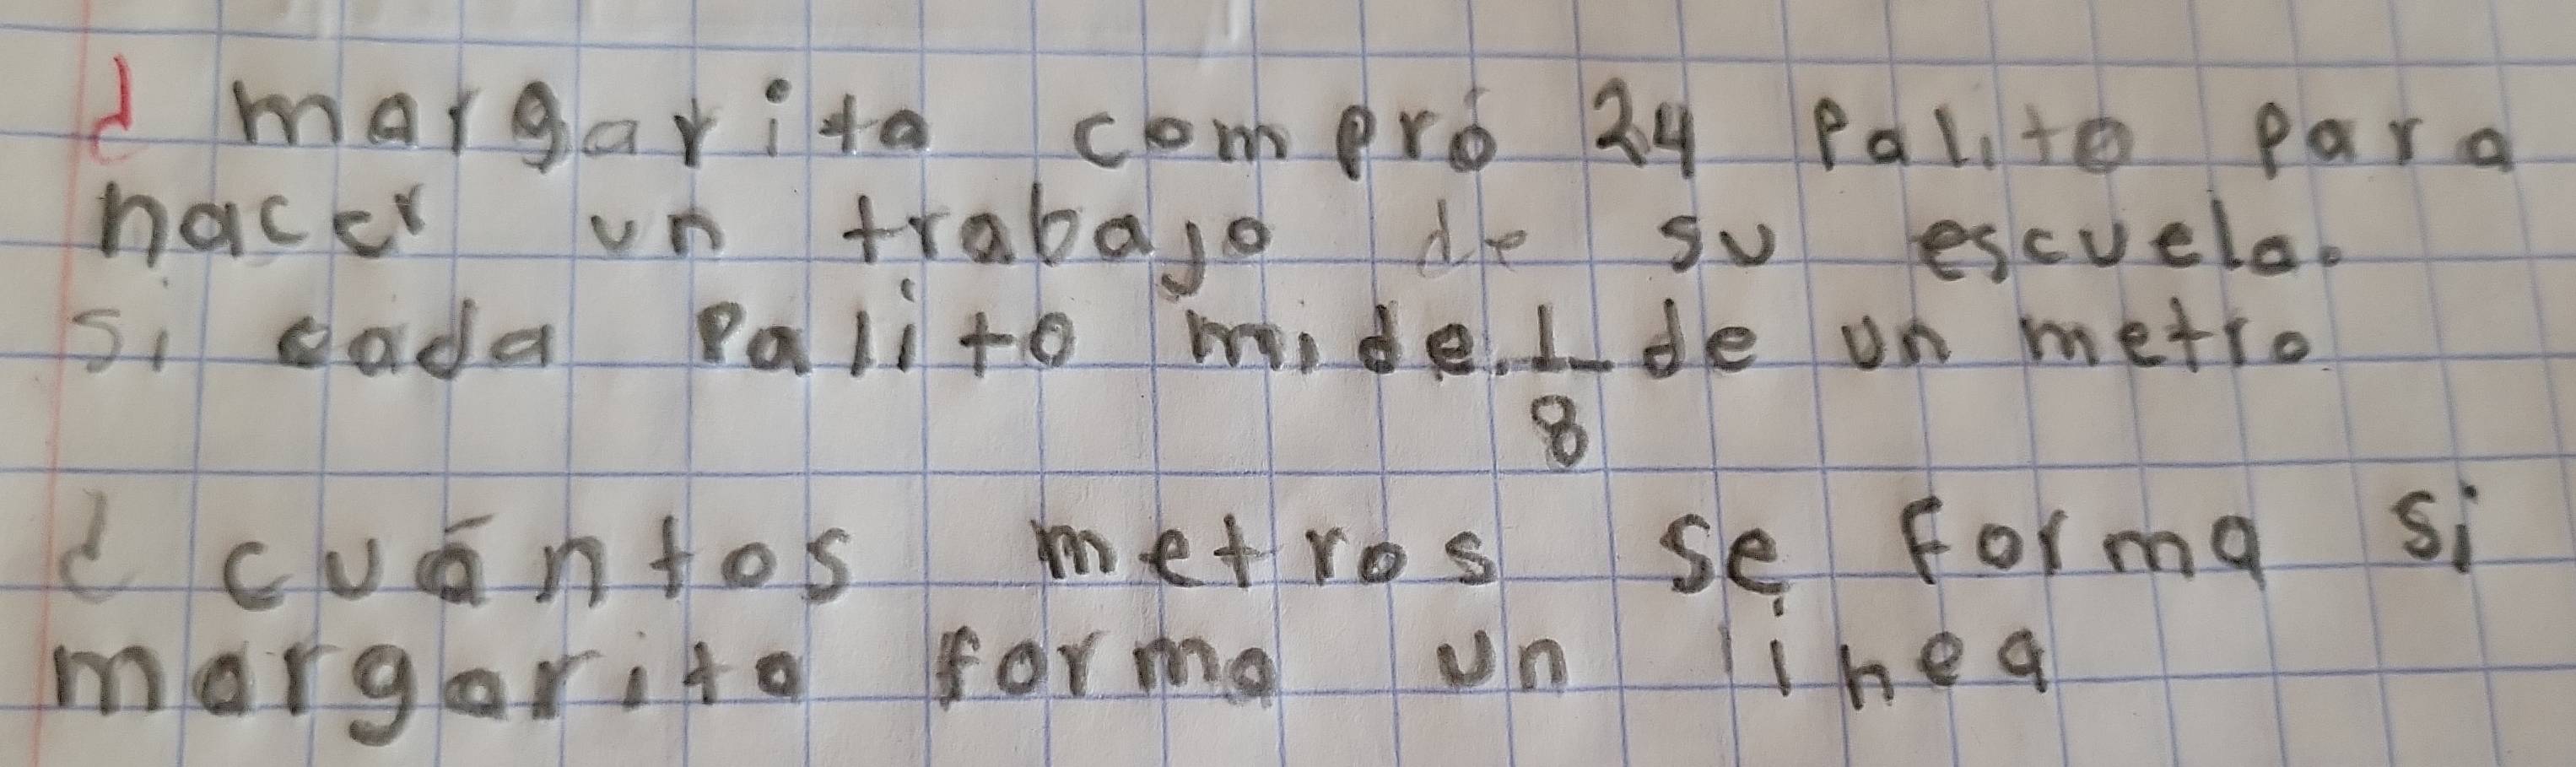 d margarita compró 24 Palito Para
hacer un trabajo de su escuela.
si cada Palito mide 1/8 de un metro
¿ cuántos metros se forma si
margarita forma un linea